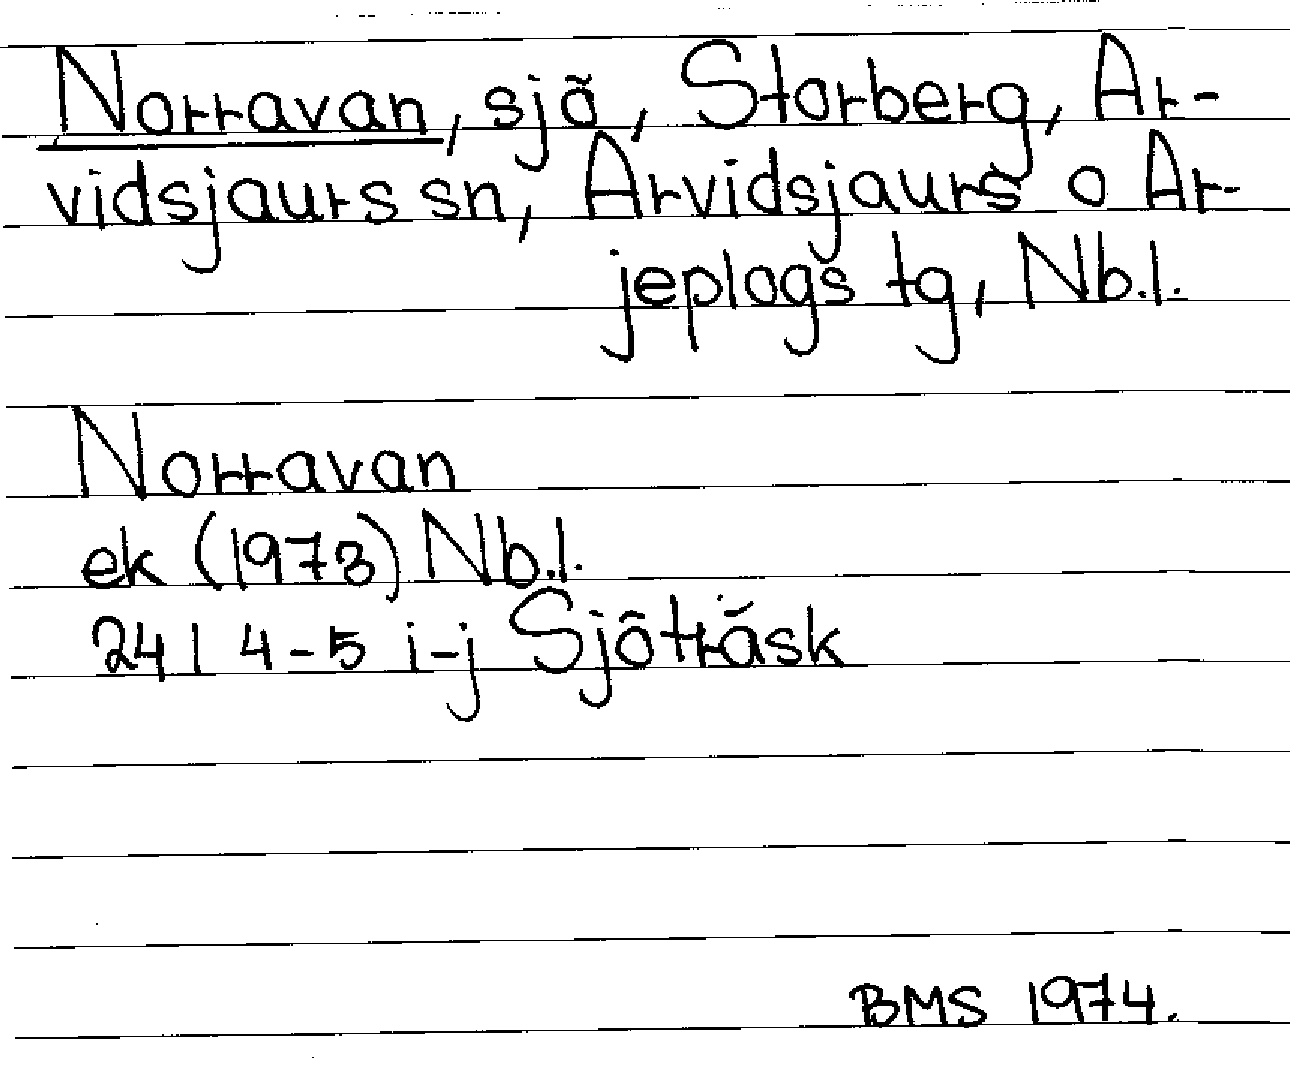 Norravan, sjö, Storberg, Ar-
vidsjaurs sn, Arvidsjaurs o Ar-
jeplogs tg, Nb.l.
Norravan
ek (1973) Nb.l.
24 I 4-5 i-j Sjöträsk
BMS 1974.